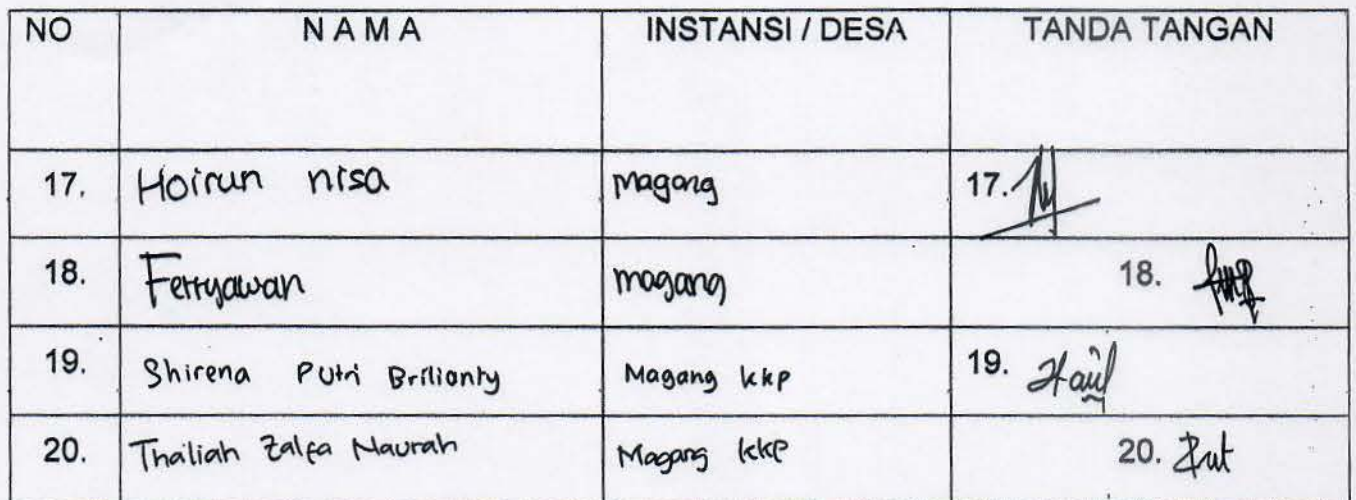 NO NAMA INSTANSI / DESA TANDA TANGAN
17. Hoirun nisa magang 17.
18. Ferryawan magang 18.
19. Shirena Putri Brilianty Magang kkp 19.
20. Thailiah Zalfa Naurah Magang kkp 20.